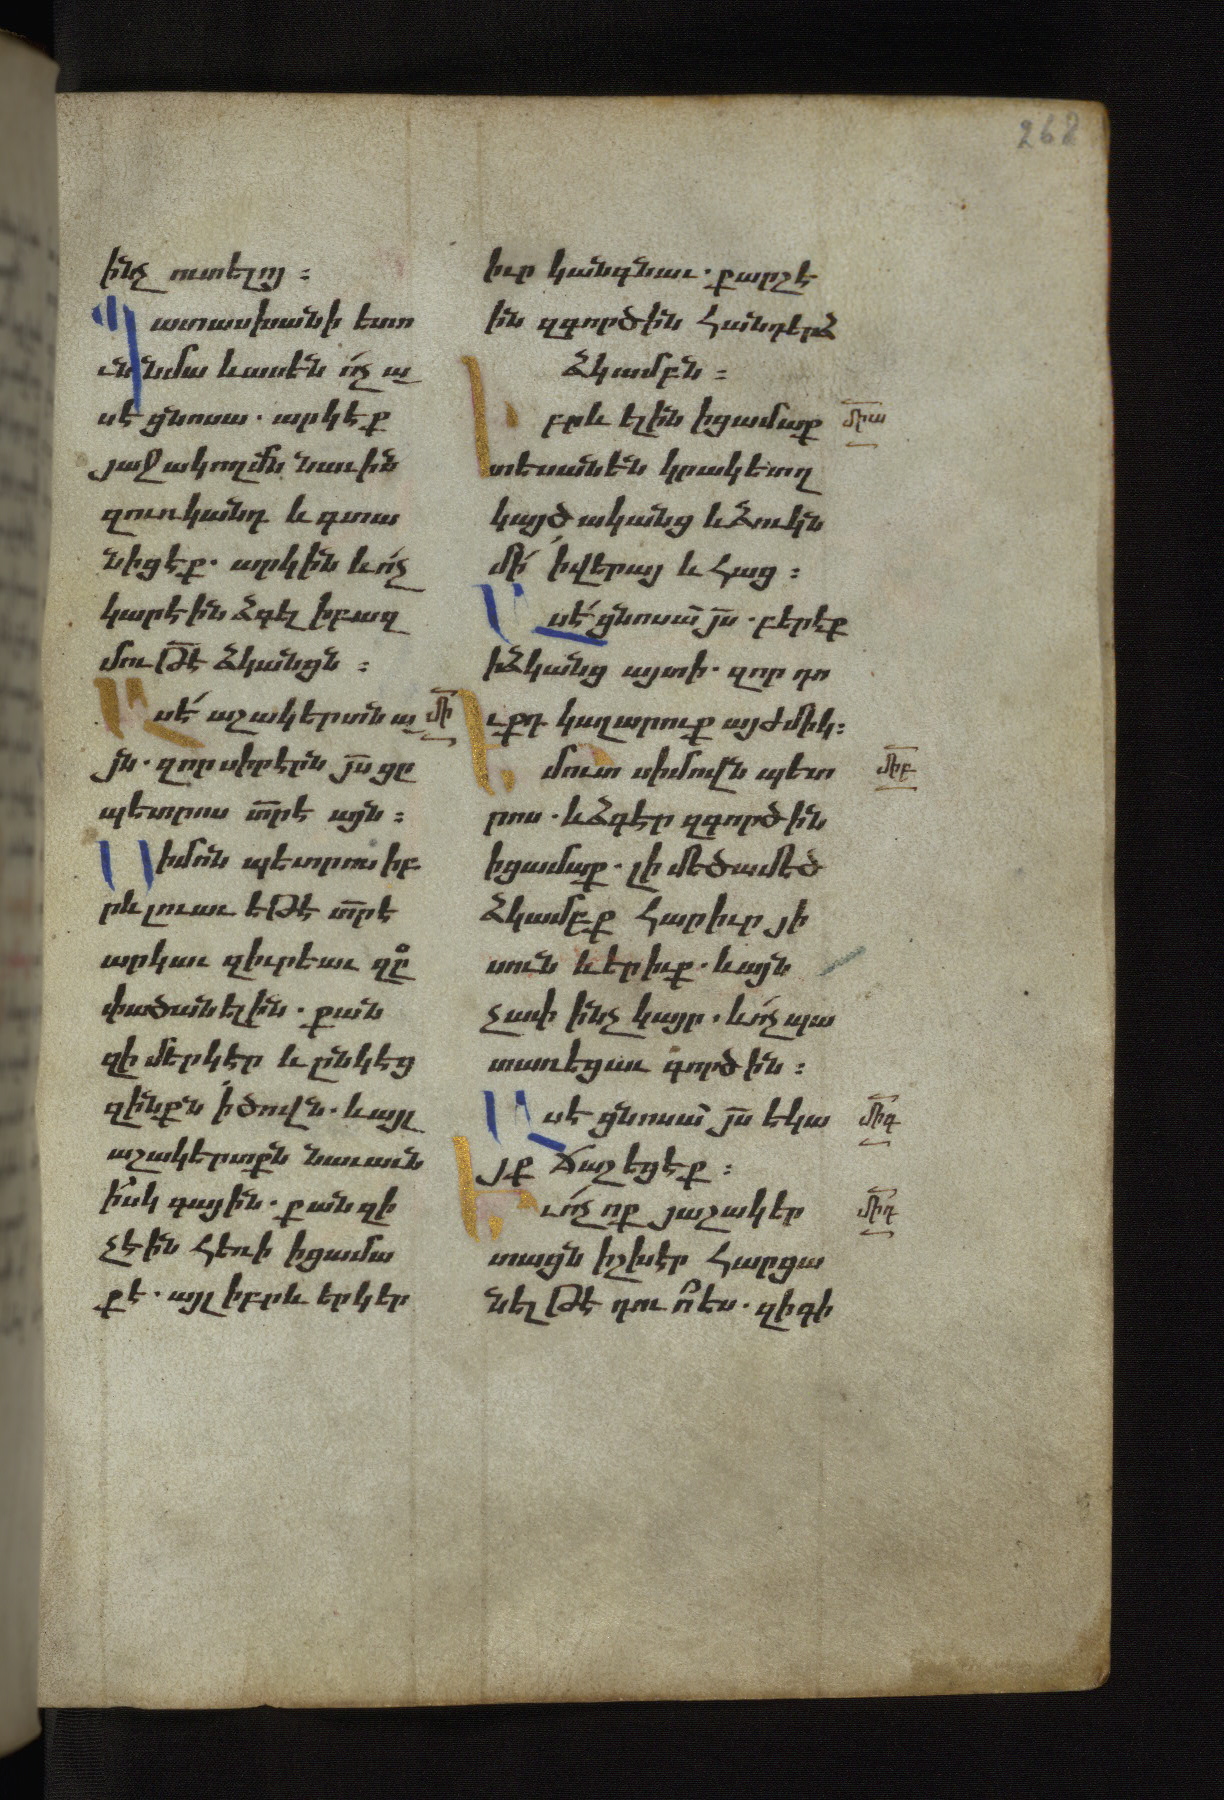 268
ինչ ուտելոյ ։
Պատասխանի ետո
ւն նմա և ասեն ո՛չ ա
սէ ցնոսա . արկէք
յաջակողմն նաւին
զուռկանդ և գտա
նիցէք . արկին և ո՛չ
կարէին ձգել ի բազ
մութէ ձկանցն ։
Ասէ՛ աշակերտն ա մի
յն . զոր սիրէրն յս ցը
պետրոս տրէ այն ։
Սիմոն պետրոս իբ
րև լուաւ եթէ տրէ
արկաւ զիւրեաւ զը
փածանելին . քան
զի մերկէր և ընկեց
զինքն ի ծովն . և այլ
աշակերտքն նաւաւն
իսկ գային . քանզի
չէին հեռի ի ցամա
քէ . այլ իբրև երկեր
իւր կանգնաւ . քարշէ
ին զգործին հանդերձ
ձկամբն ։
Իբրև ելին ի ցամաք միա
տեսանեն կրակետղ
կայծականց և ձուկն
մի ի վերայ և հաց ։
Ասէ՛ ցնոսա յս . բերէք
ի ձկանց այտի . զոր դո
ւքդ կալարուք այժմիկ ։
Եմուտ սիմովն պետ միբ
րոս . և ձգեր զգործին
ի ցամաք . լի մեծամեծ
ձկամբք հարիւր յի
սուն և երիւք . և այն
չափ ինչ կայր . և ո՛չ պա
տառեցաւ գործին ։
Ասէ ցնոսա յս եկա միգ
յք ճաշեցէք ։
Եւ ո՛չ ոք յաշակեր միդ
տացն իշխէր հարցա
նել թէ դու ո՞ ես . զի գի